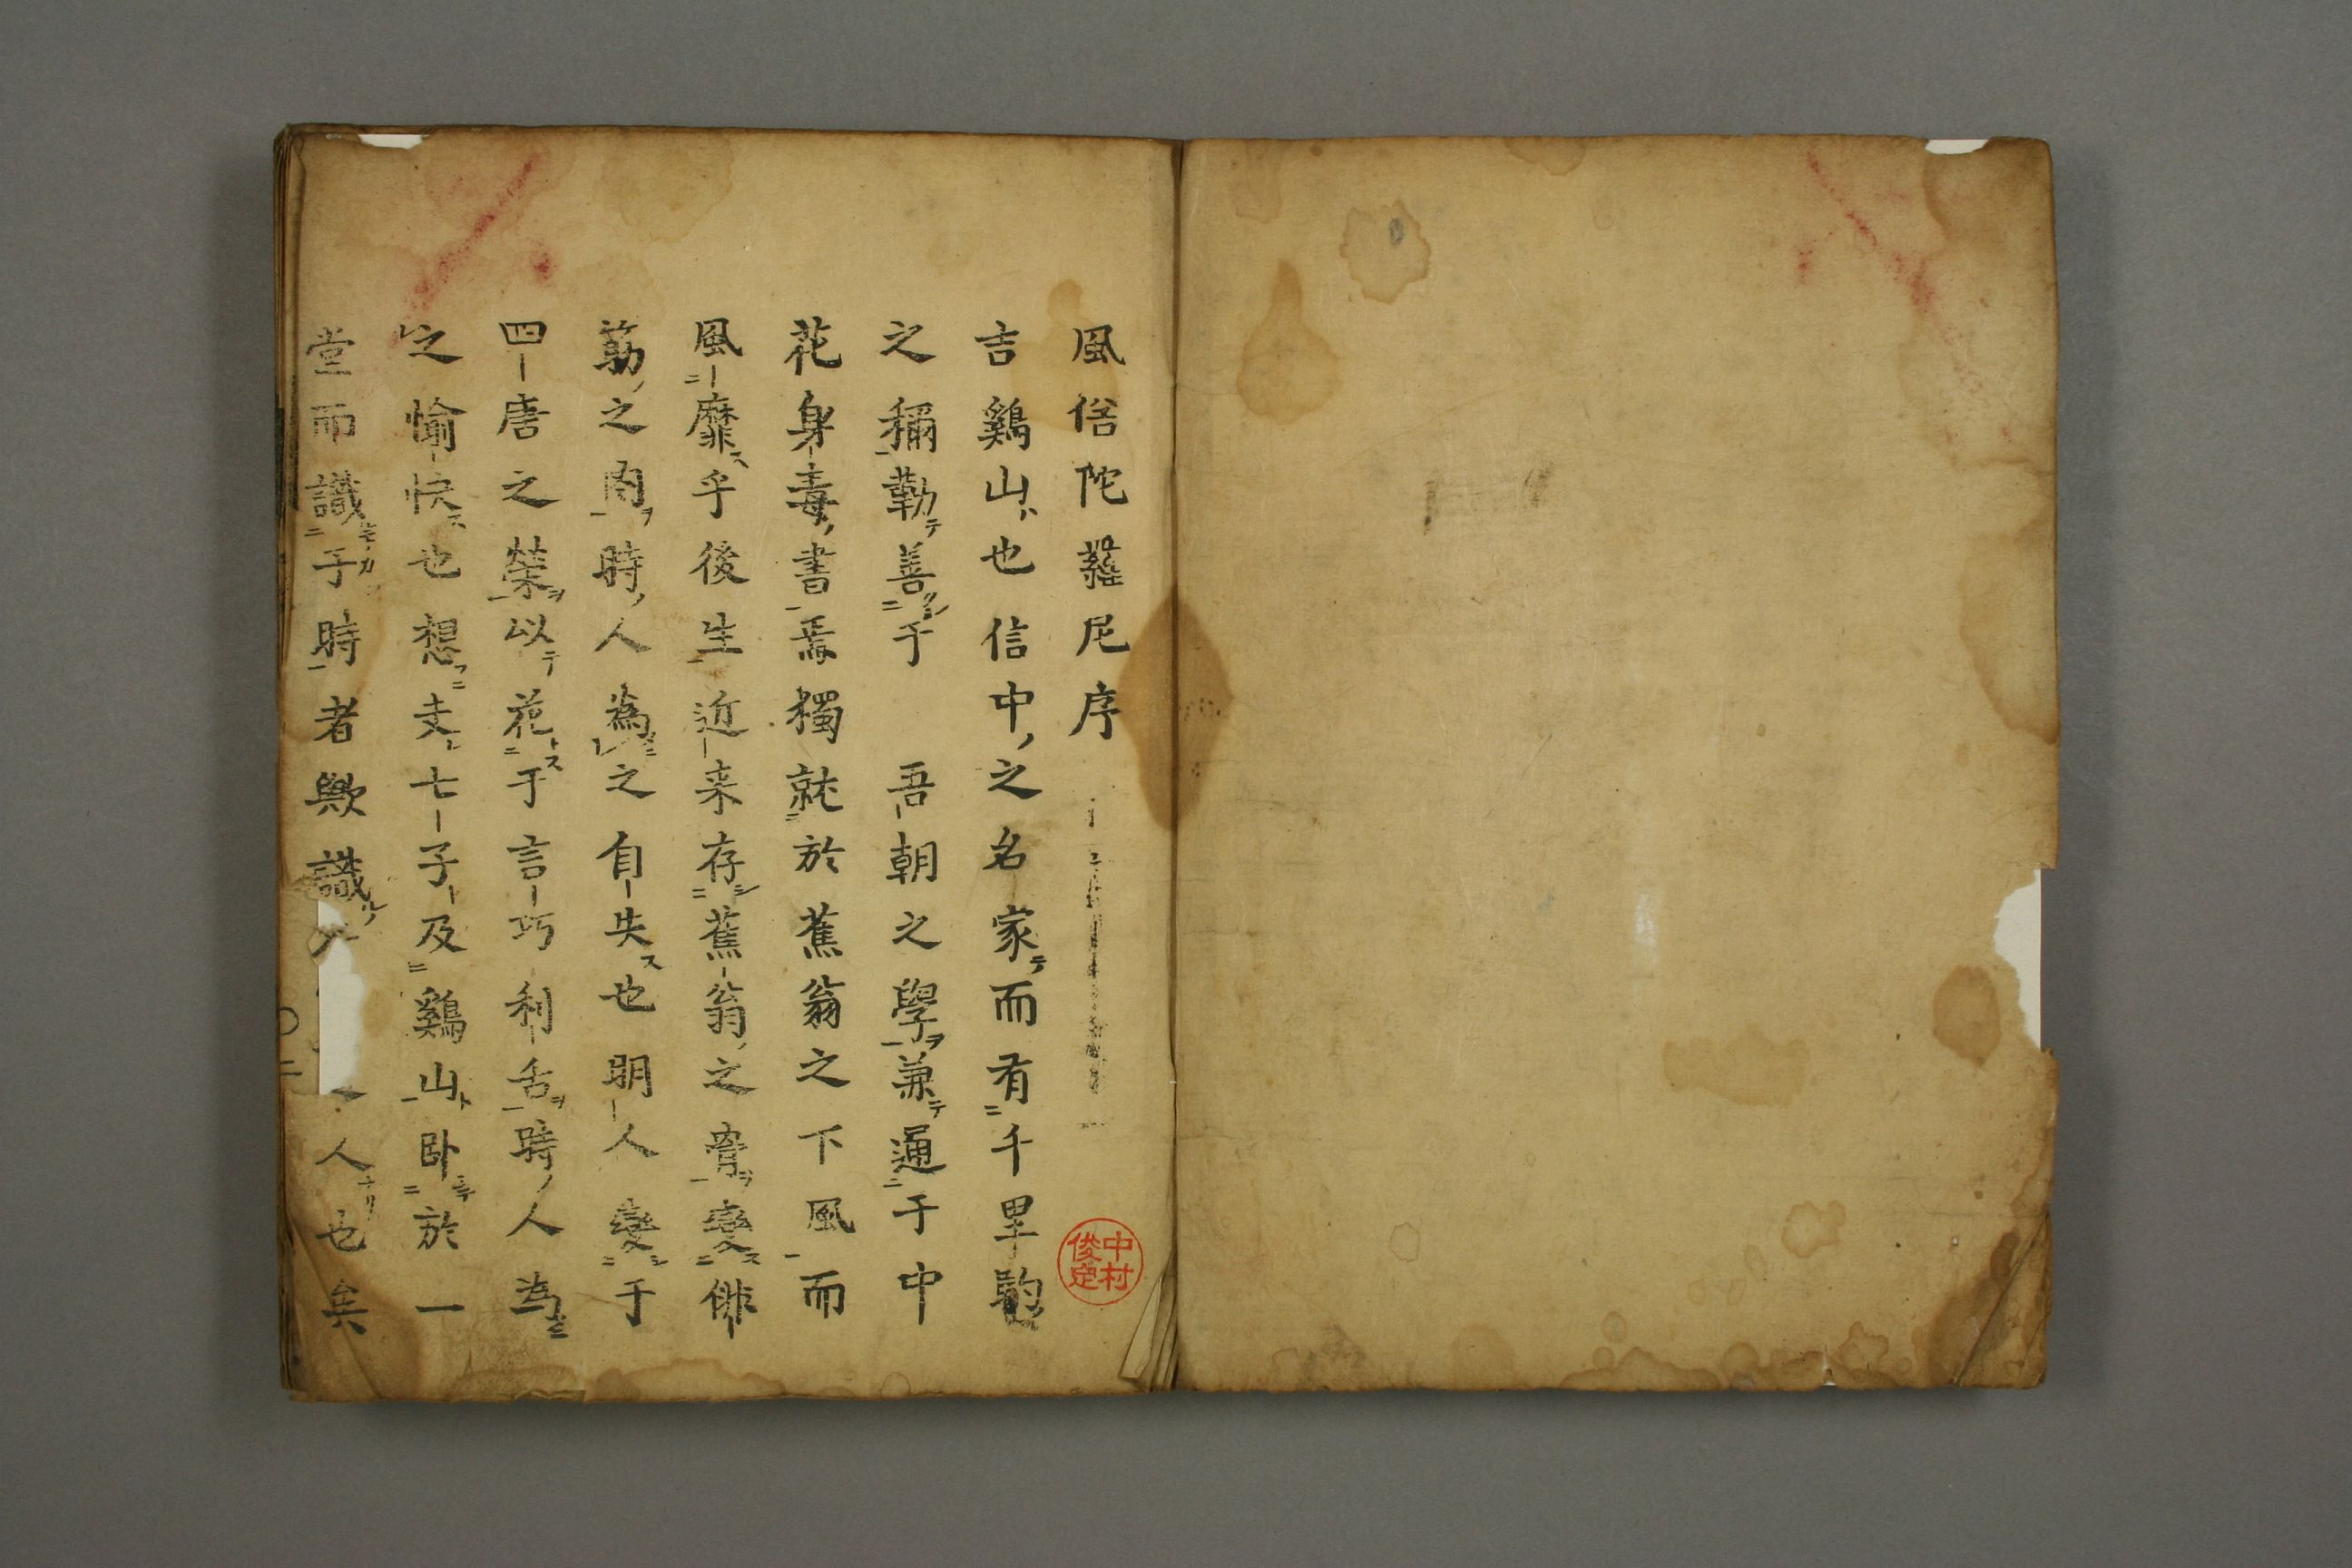 風俗陀羅尼序
吉鷄山也信中之名家而有千里駒
之稱勤善于 吾朝之學兼通于中
花身毒書焉獨就於蕉翁之下風而
風靡乎後生近来存蕉翁之骨變俳
筋之肉時人為之自失也明人變于
四唐之榮以花于言巧利舌時人為
之愉快也想夫七子及鷄山卧於一
堂而識于時者歟識人也矣
中村俊定